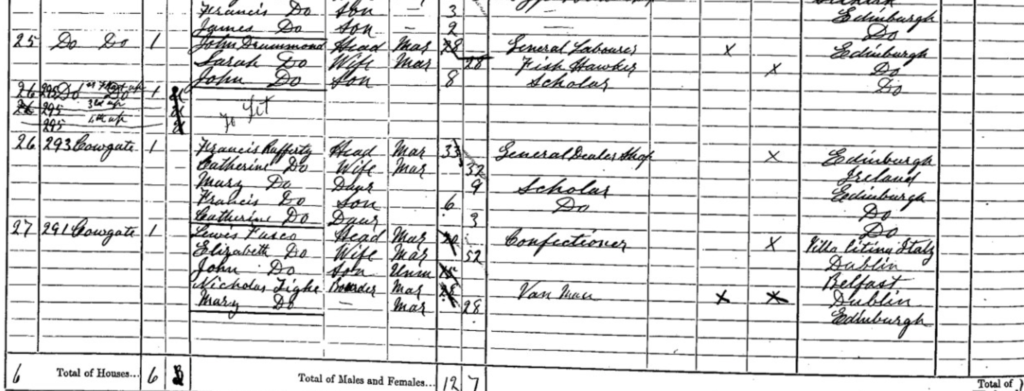 Francis Do Son - 3 Edinburgh
James Do Son - 2 Do
25 Do Do 1 John Drummond Head Mar 28 General Labourer x Edinburgh
Sarah Do Wife Mar 28 Fish Hawker x Do
John Do Son 8 Scholar Do
26 295 Do 1 To Let
26 295 3rd up
295 4th up
26 293 Cowgate 1 Francis Rafferty Head Mar 33 General Dealer Shop x Edinburgh
Catherine Do Wife Mar 32 Ireland
Mary Do Daur 9 Scholar Edinburgh
Francis Do Son 6 Do Do
Catherine Do Daur 3 Do
27 291 Cowgate 1 Lewis Fusco Head Mar Confectioner x Villa Litina Italy
Elizabeth Do Wife Mar 52 Dublin
John Do Son Unm Belfast
Nicholas Tighe Boarder Mar 28 Van Man x x Dublin
Mary Do - Mar 28 Edinburgh
6 Total of Houses... 6 Total of Males and Females... 12 7 Total of